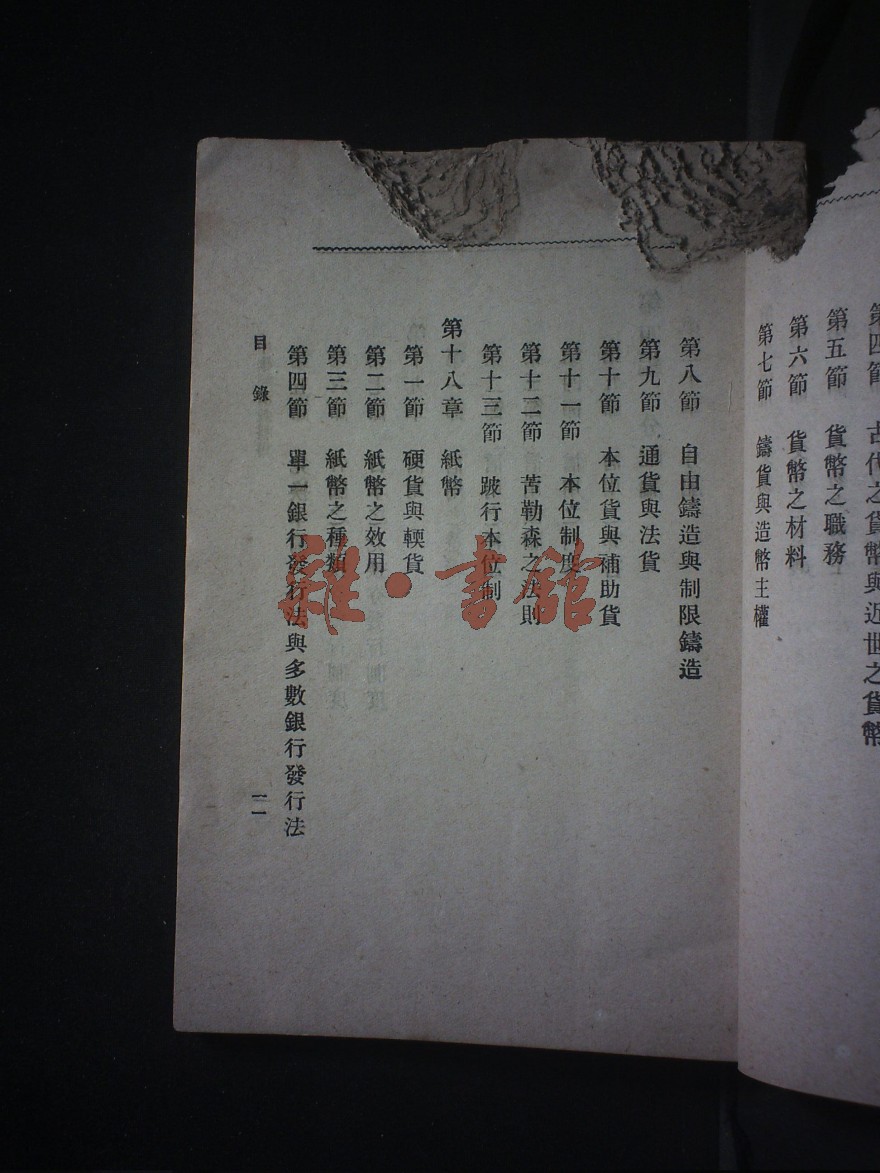 第四節　古代之貨幣與近世之貨幣
第五節　貨幣之職務
第六節　貨幣之材料
第七節　鑄貨與造幣主權
第八節　自由鑄造與制限鑄造
第九節　通貨與法貨
第十節　本位貨與補助貨
第十一節　本位制度
第十二節　苦勒森之法則
第十三節　跛行本位制
第十八章　紙幣
第一節　硬貨與輭貨
第二節　紙幣之效用
第三節　紙幣之種類
第四節　單一銀行發行法與多數銀行發行法
目錄　一一
雜·書館